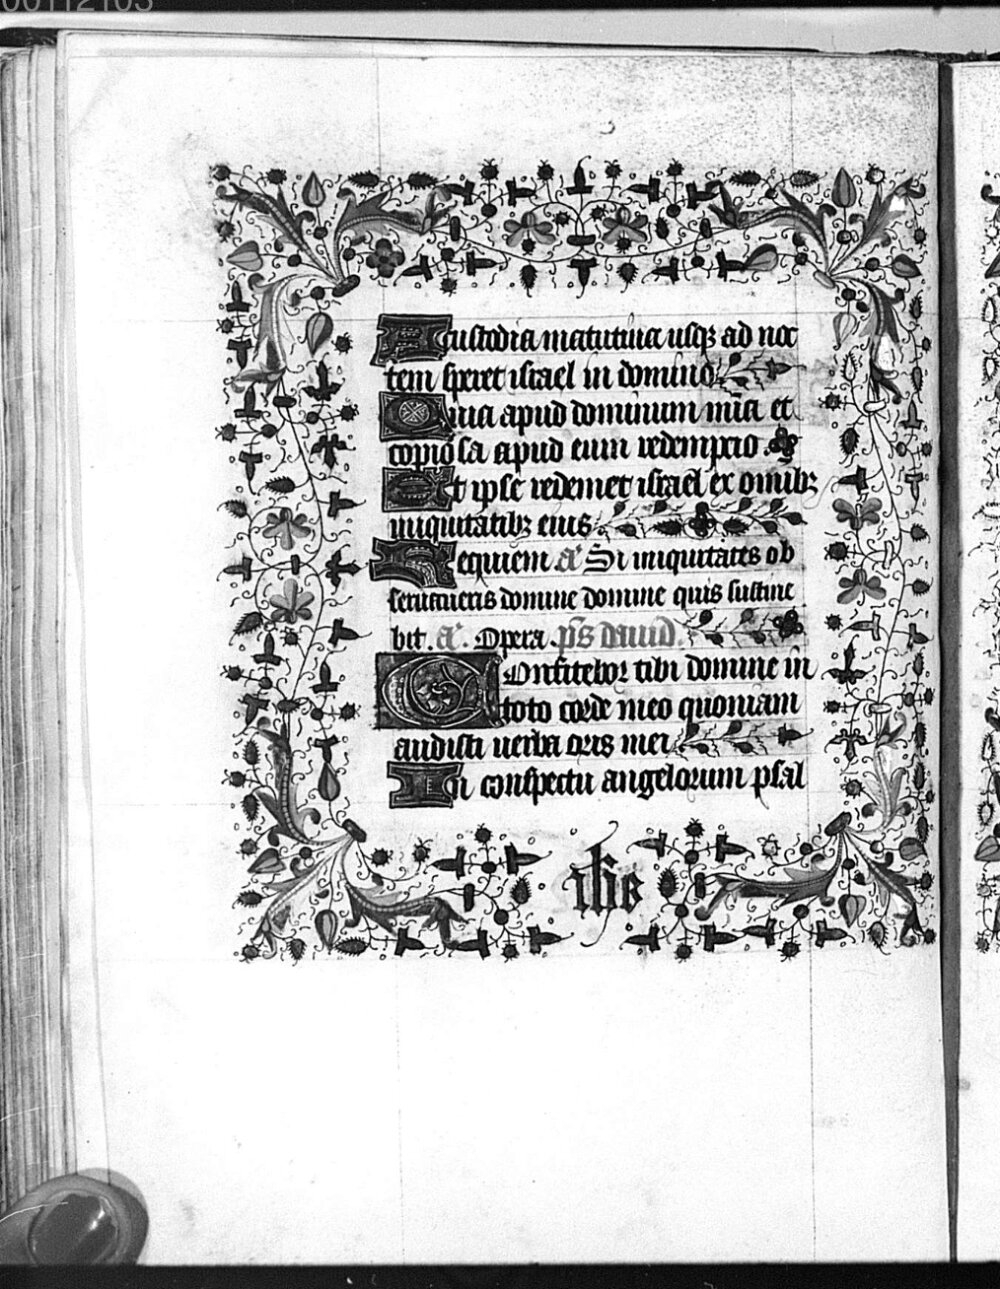 00112103
A custodia matutina usqꝫ ad noc
tem speret israel in domino
Quia apud dominum mīa et
copiosa apud eum redempcio
Et ipse redimet israel ex omibꝫ
iniquitatibꝫ eius
Requiem a Si iniquitates ob
seruaueris domine domine quis sustine
bit. a. Opera. ps dauid.
Confitebor tibi domine in
toto corde meo quoniam
audisti uerba oris mei
In conspectu angelorum psal
ihs